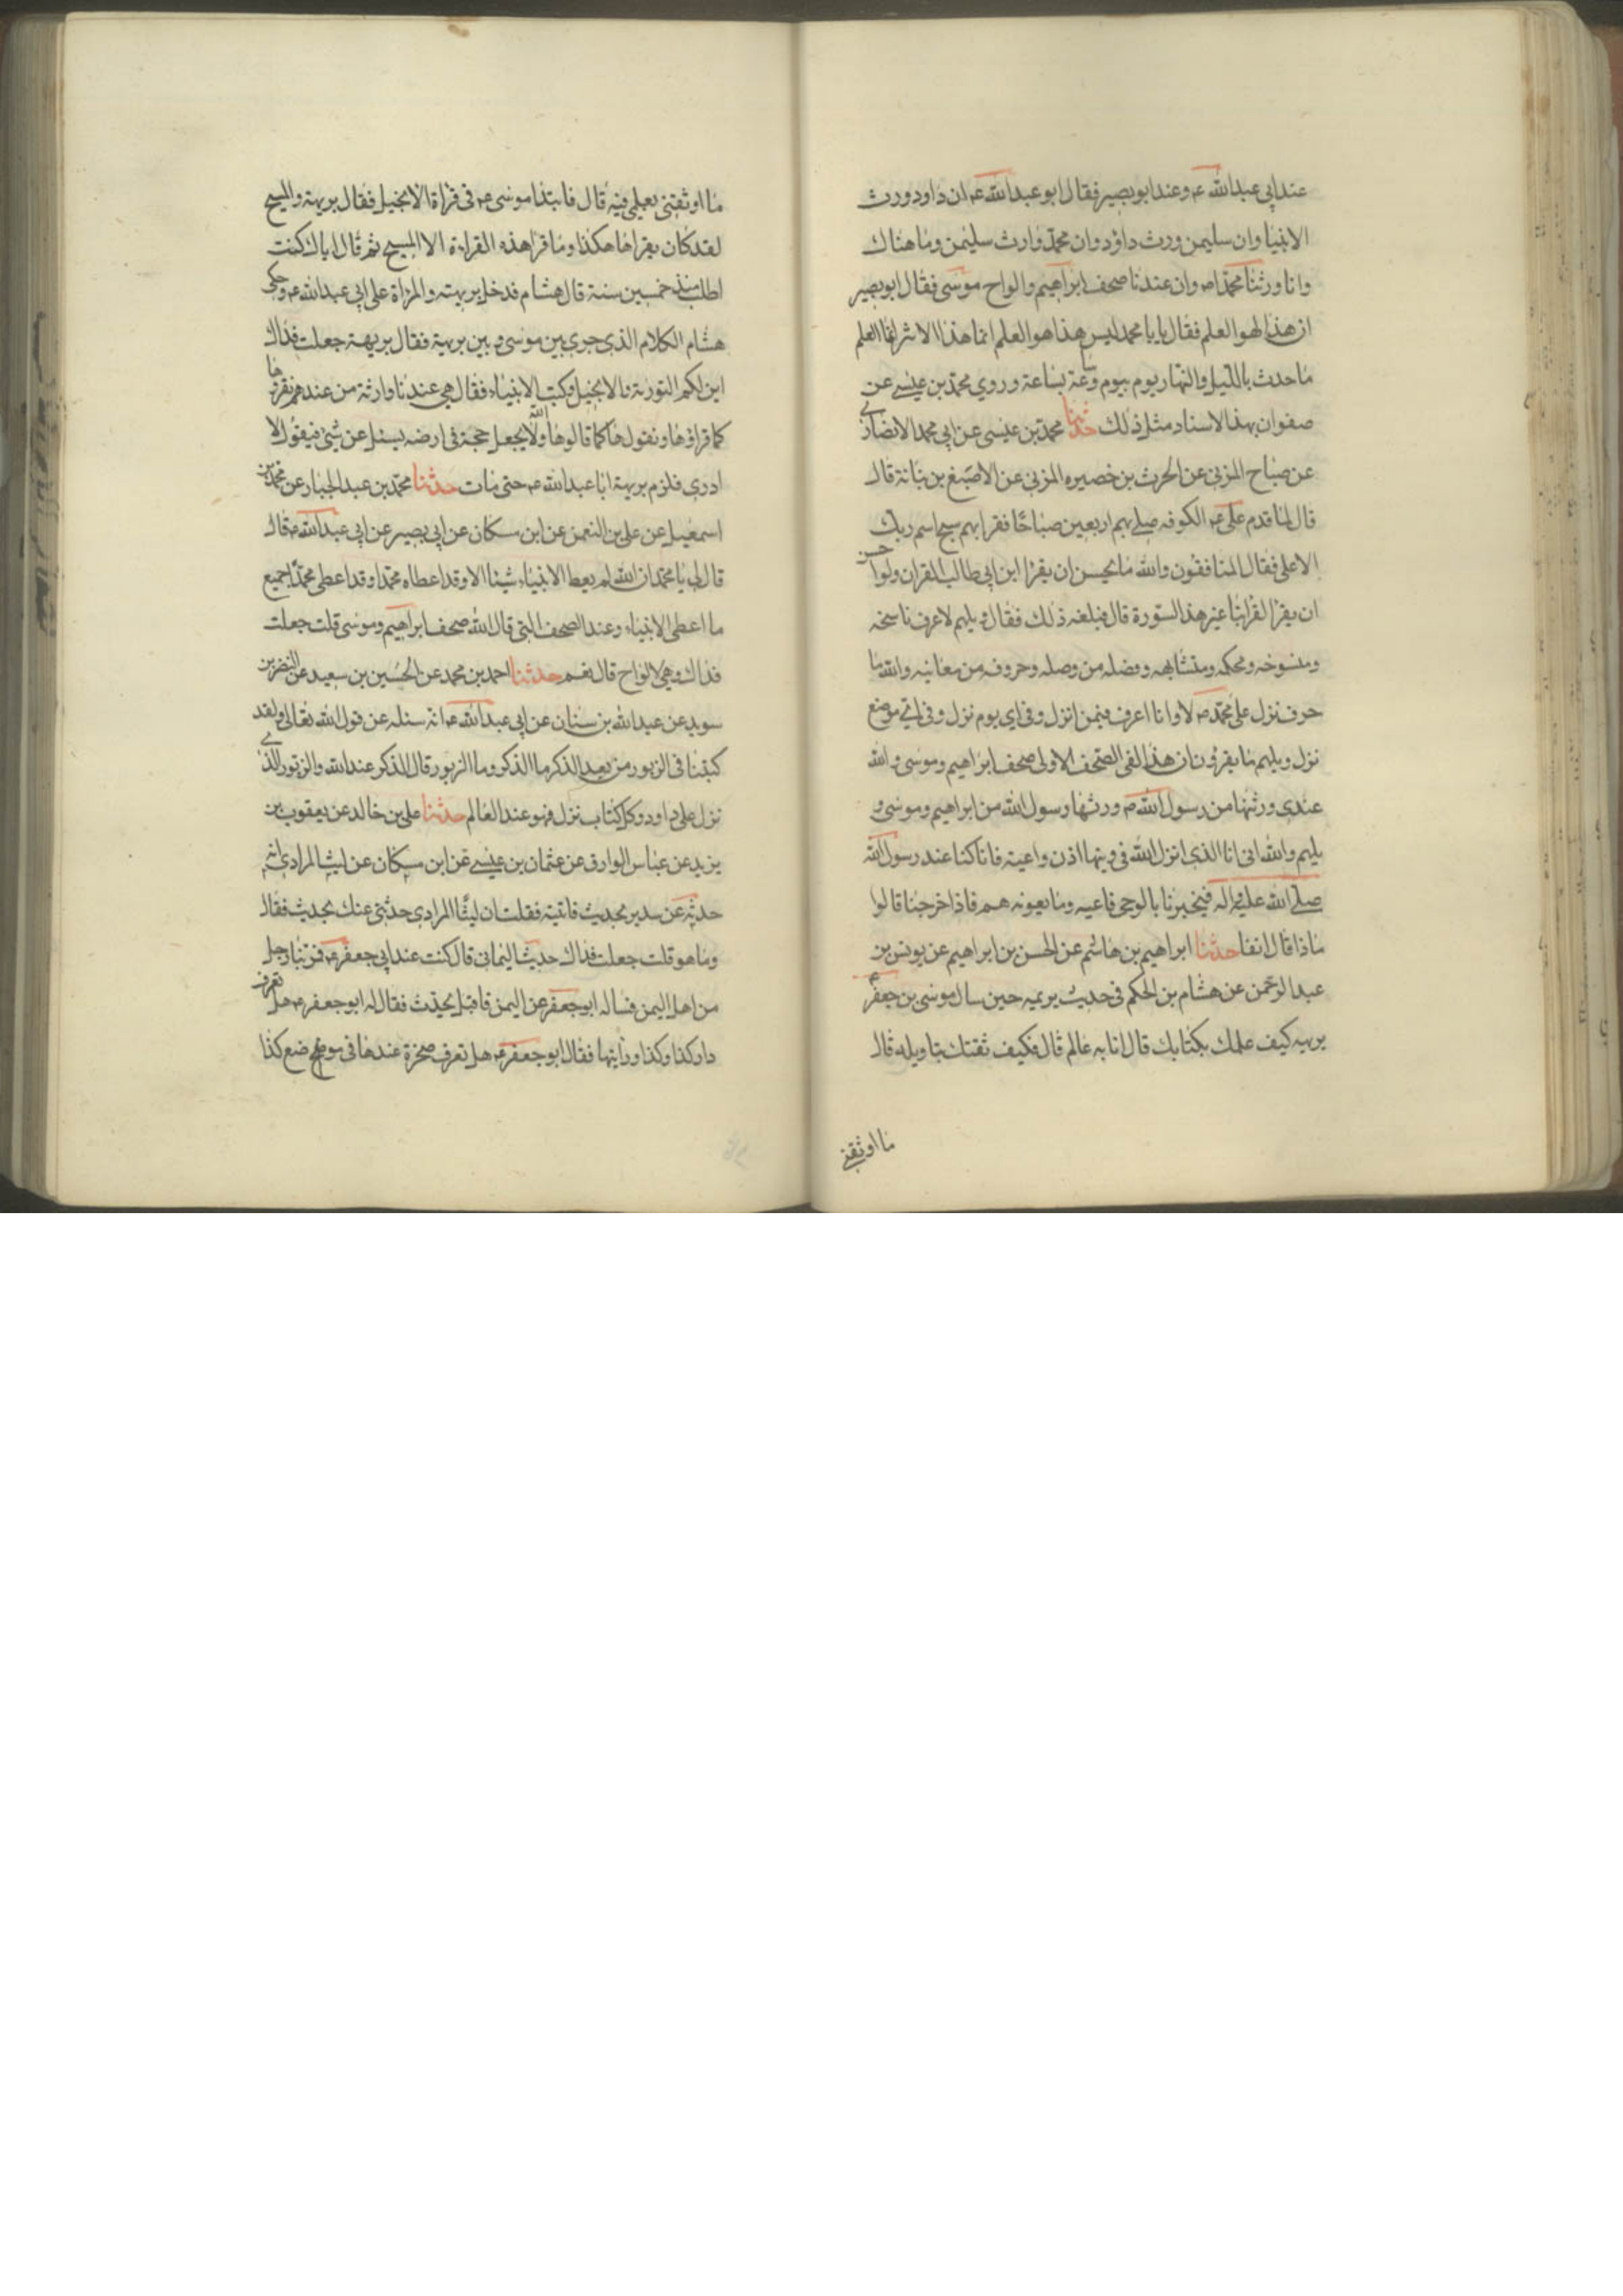 عند ابي عبد الله ع و عند ابو بصير فقال ابو عبد الله ع ان داود ورث
الانبيا وان سليمن ورث داود وان محمد وارث سليمن وما هناك
وانا ورثنا محمدا ص وان عندنا صحف ابراهيم والواح موسى فقال ابو بصير
ان هذا لهو العلم فقال يا با محمد ليس هذا هو العلم انما هذا الاثر انما العلم
ما حدث بالليل والنهار يوم بيوم وساعة بساعة وروي محمد بن عيسى عن
صفوان بهذا الاسناد مثل ذلك حدثنا محمد بن عيسى عن ابي محمد الانصاري
عن صباح المزني عن الحرث بن خصيره المزني عن الاصبغ بن نباتة قال
قال لما قدم علي ع الكوفه صلى بهم اربعين صباحا فقرا بهم سبح اسم ربك
الاعلى فقال المنافقون والله ما يحسن ان يقرا ابن ابي طالب القران ولو احسن
ان يقرا لقرا بنا غير هذا السورة قال فبلغه ذلك فقال ويلهم لاعرف ناسخه
ومنسوخه ومحكمه ومتشابهه وفصله من وصله وحروفه من معانيه والله ما
حرف نزل على محمد ص لا وانا اعرف فيمن انزل وفي اي يوم نزل وفي اي موضع
نزل ويلهم ما يقرؤن ان هذا لفي الصحف الاولى صحف ابراهيم وموسى والله
عندي ورثتها من رسول الله ص وورثها رسول الله من ابراهيم وموسى و
يلهم والله اني انا الذي انزل الله في وتيها اذن واعية فانا كنا عند رسول الله
صلى الله عليه واله فيخبرنا بالوحي فاعيه وما يعونه هم فاذا خرجنا قالوا
ماذا قال انفا حدثنا ابراهيم بن هاشم عن الحسن بن ابراهيم عن يونس بن
عبد الرحمن عن هشام بن الحكم في حديث بريهه حين سال موسى بن جعفر ع
بريهه كيف علمك بكتابك قال انا به عالم قال فكيف ثقتك بتاويله قال
ما اوثقني
ما اوثقني بعلمي فيه قال فابتدا موسى ع في قراة الانجيل فقال بريهة والمسيح
لقد كان يقراها هكذا وما قرا هذه القراءة الا المسيح ثم قال اياك كنت
اطلب منذ خمسين سنة قال هشام فدخل بريهه والمراة على ابي عبد الله ع وحكى
هشام الكلام الذي جرى بين موسى و بين بريهة فقال بريهة جعلت فداك
اين لكم التورية والانجيل وكتب الانبياء فقال هي عندنا وارثة من عندهم نقرؤها
كما قراؤها ونقولها كما قالوها ولا يجعل الله حجة في ارضه يسئل عن شئ فيقول لا
ادري فلزم بريهة ابا عبد الله ع حتى مات حدثنا محمد بن عبد الجبار عن محمد بن
اسمعيل عن علي بن النعمن عن ابن مسكان عن ابي بصير عن ابي عبد الله ع قال
قال لي يا محمد ان الله لم يعط الانبياء شيئا الا وقد اعطاه محمدا وقد اعطى محمدا جميع
ما اعطى الانبياء وعند الصحف التي قال الله صحف ابراهيم وموسى قلت جعلت
فداك وهي الالواح قال نعم حدثنا احمد بن محمد عن الحسين بن سعيد عن النضر بن
سويد عن عبد الله بن سنان عن ابي عبد الله ع انه سئله عن قول الله تعالى ولقد
كتبنا في الزبور من بعد الذكر ما الذكر وما الزبور قال الذكر عند الله والزبور الذي
نزل على داود وكل كتاب نزل فهو عند العالم حدثنا علي بن خالد عن يعقوب بن
يزيد عن عباس الوراق عن عثمان بن عيسى عن ابن مسكان عن ليث المرادي انه
حدثه عن سدير بحديث فاتيته فقلت ان ليثا المرادي حدثني عنك بحديث فقال
وما هو قلت جعلت فداك حديث اليماني قال كنت عند ابي جعفر ع فمر بنا رجل
من اهل اليمن فساله ابو جعفر عن اليمن فاقبل يحدث فقال له ابو جعفر ع هل تعرف
دار كذا وكذا ورايتها فقال ابو جعفر ع هل تعرف صخرة عندها في موضع كذا